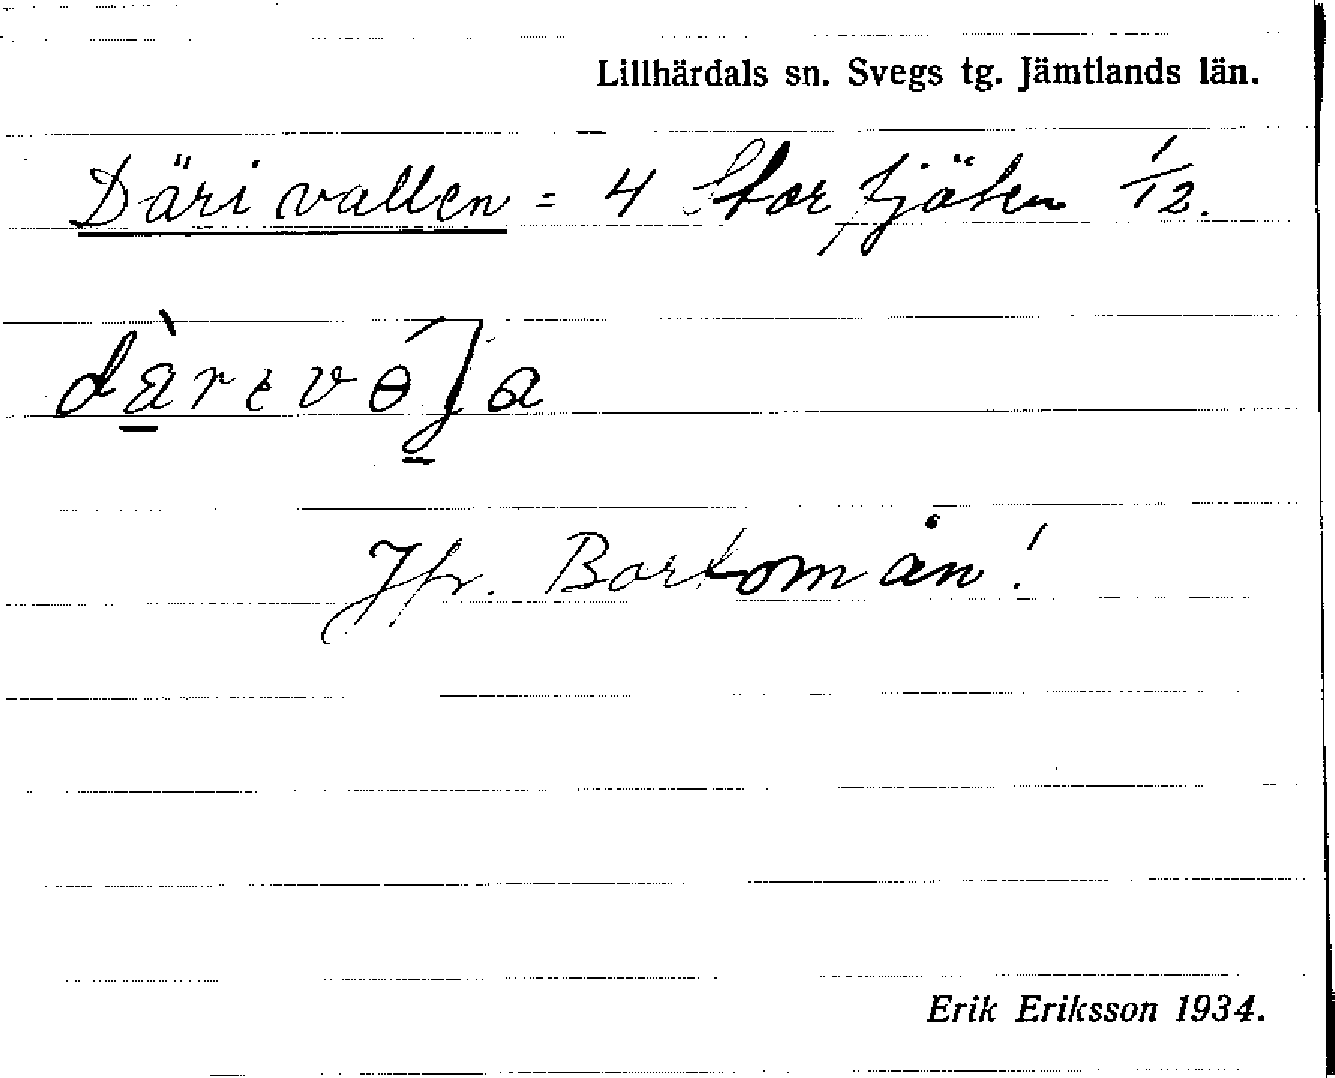 Lillhärdals sn. Svegs tg. Jämtlands län.
Däri vallen = 4 Stor tjäten 1/2.
Jfr. Bortom ån!
Erik Eriksson 1934.